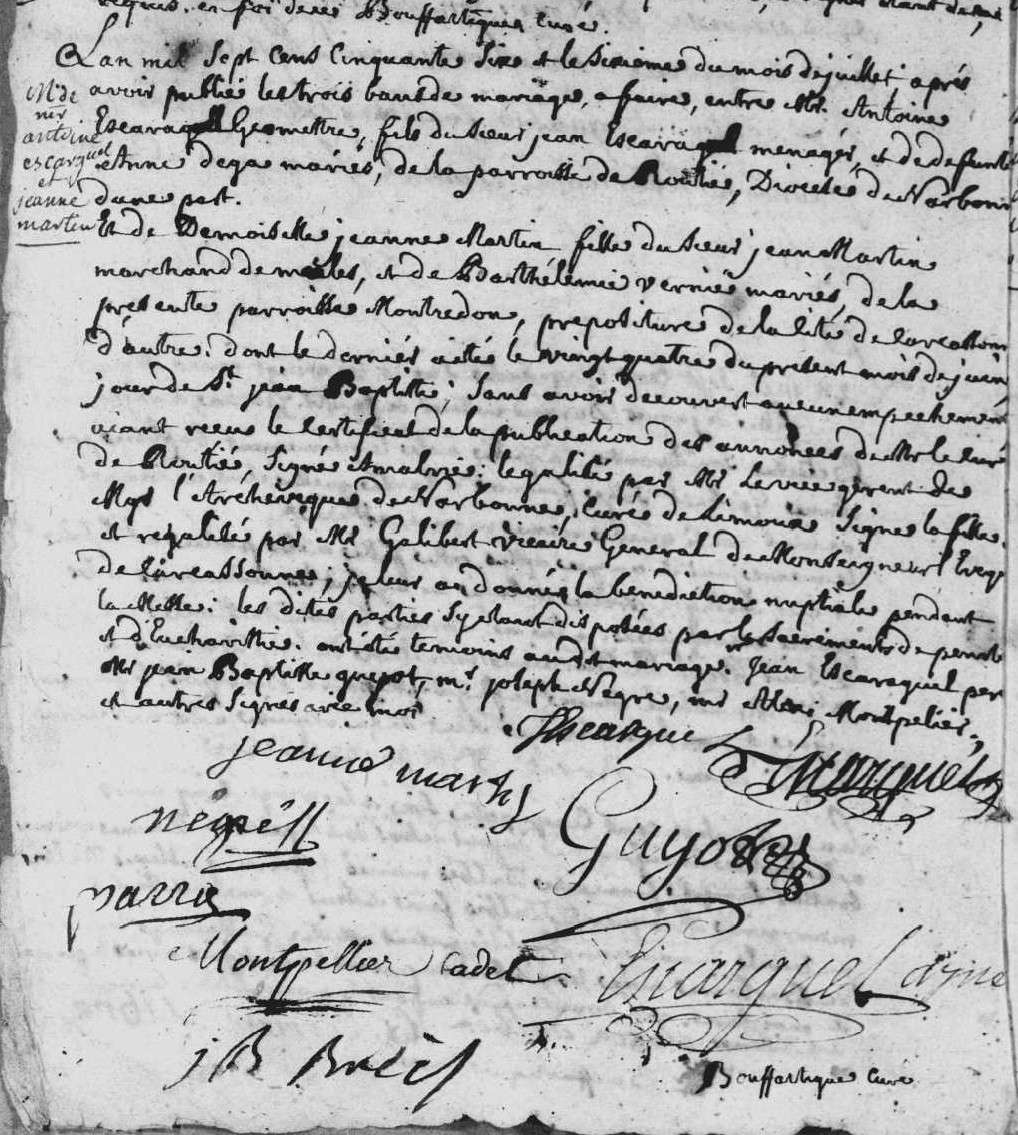 requis. en foi de ce Bouffartigues Curé.
L'an mil sept cens Cinquante Six et le Sixieme du mois de juillet, aprés
avoir publié les trois bans de mariage, a faire, entre Mr. Antoine
Escaraguel Geomettre, fils du Sieur jean Escaraguel menagér, et de defunte
Anne dega mariés, de la parroisse de Routié, Diocése de Narbonne
dune part.
Mge de
mr
antoine
escarguel
et
jeanne
martin
Et de Demoiselle jeanne Martin fille du Sieur jean Martin
marchand de mules, et de Barthélemie vernié mariés, de la
presente parroisse Montredon, prepositure de la Cité de Carcassonne
d'autre. dont le derniér a été le vingt quatre du present mois de juin
jour de St. jean Baptiste; sans avoir découvert aucun empechement
aiant recus le Certificat de la publication des annonces de Mr le Curé
de Routié, Signé Amalric. legalisé par Mr Le vice gerent de
Mgr l'Archévéque de Narbonne, Curé de Limoux Signé lafille.
et regalisé par Mr Galibert vicaire General de Monseigneur l'Eveque
de Carcassonne; je leur ai donné la benediction nuptiale pendant
la Messe: les dites parties S'y etant disposées par les Sacrements de penitence
et d'Eucharistie. ont été temoins audit mariage. Jean Escaraguel pere
Mr jean Baptiste guyot, mr. joseph Négre, mr Montpeliér,
et autres Signés avec moi
Escargue
Escarguel
jeanne martin
negre
Guyot
narra
Montpellier Cadet
Escarguel ayné
jB
Bouffartigue Cure